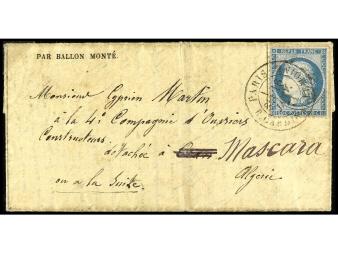 PAR BALLON MONTÉ.
REPUB. FRANC.
PARIS
Monsieur Cyprien Martin
à la 4e Compagnie d'Ouvriers
Constructeurs
détachée à Mascara
Algérie
ou à la Suite